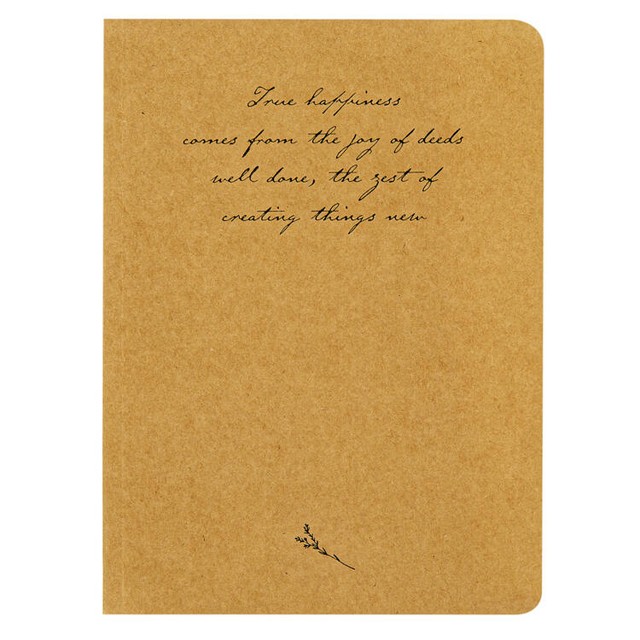 True happiness
comes from the joy of deeds
well done, the zest of
creating things new